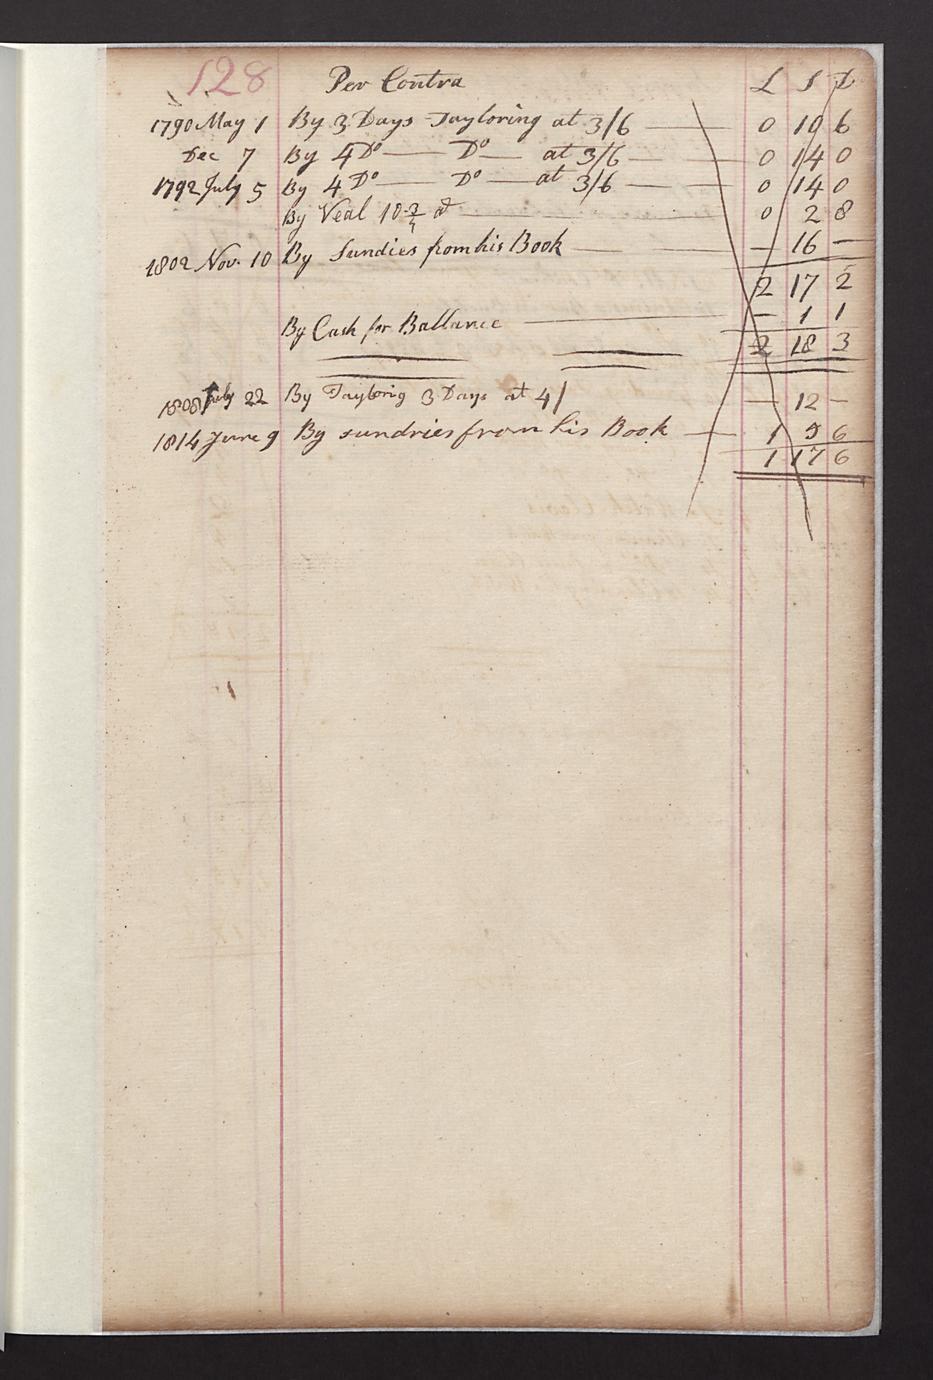 128 Per Contra L S D
1790 May 1 By 3 Days Tayloring at 3/6 — 0 10 6
Dec 7 By 4 Do — Do — at 3/6 — 0 14 0
1792 July 5 By 4 Do — Do — at 3/6 — 0 14 0
By Veal 10 3/4 — 0 2 8
1802 Nov. 10 By Sundies from his Book — — 16 —
2 17 2
By Cash for Ballance — — 1 1
2 18 3
1808 July 22 By Tayloring 3 Days at 4/ — 12 —
1814 June 9 By sundries from his Book — 1 5 6
1 17 6